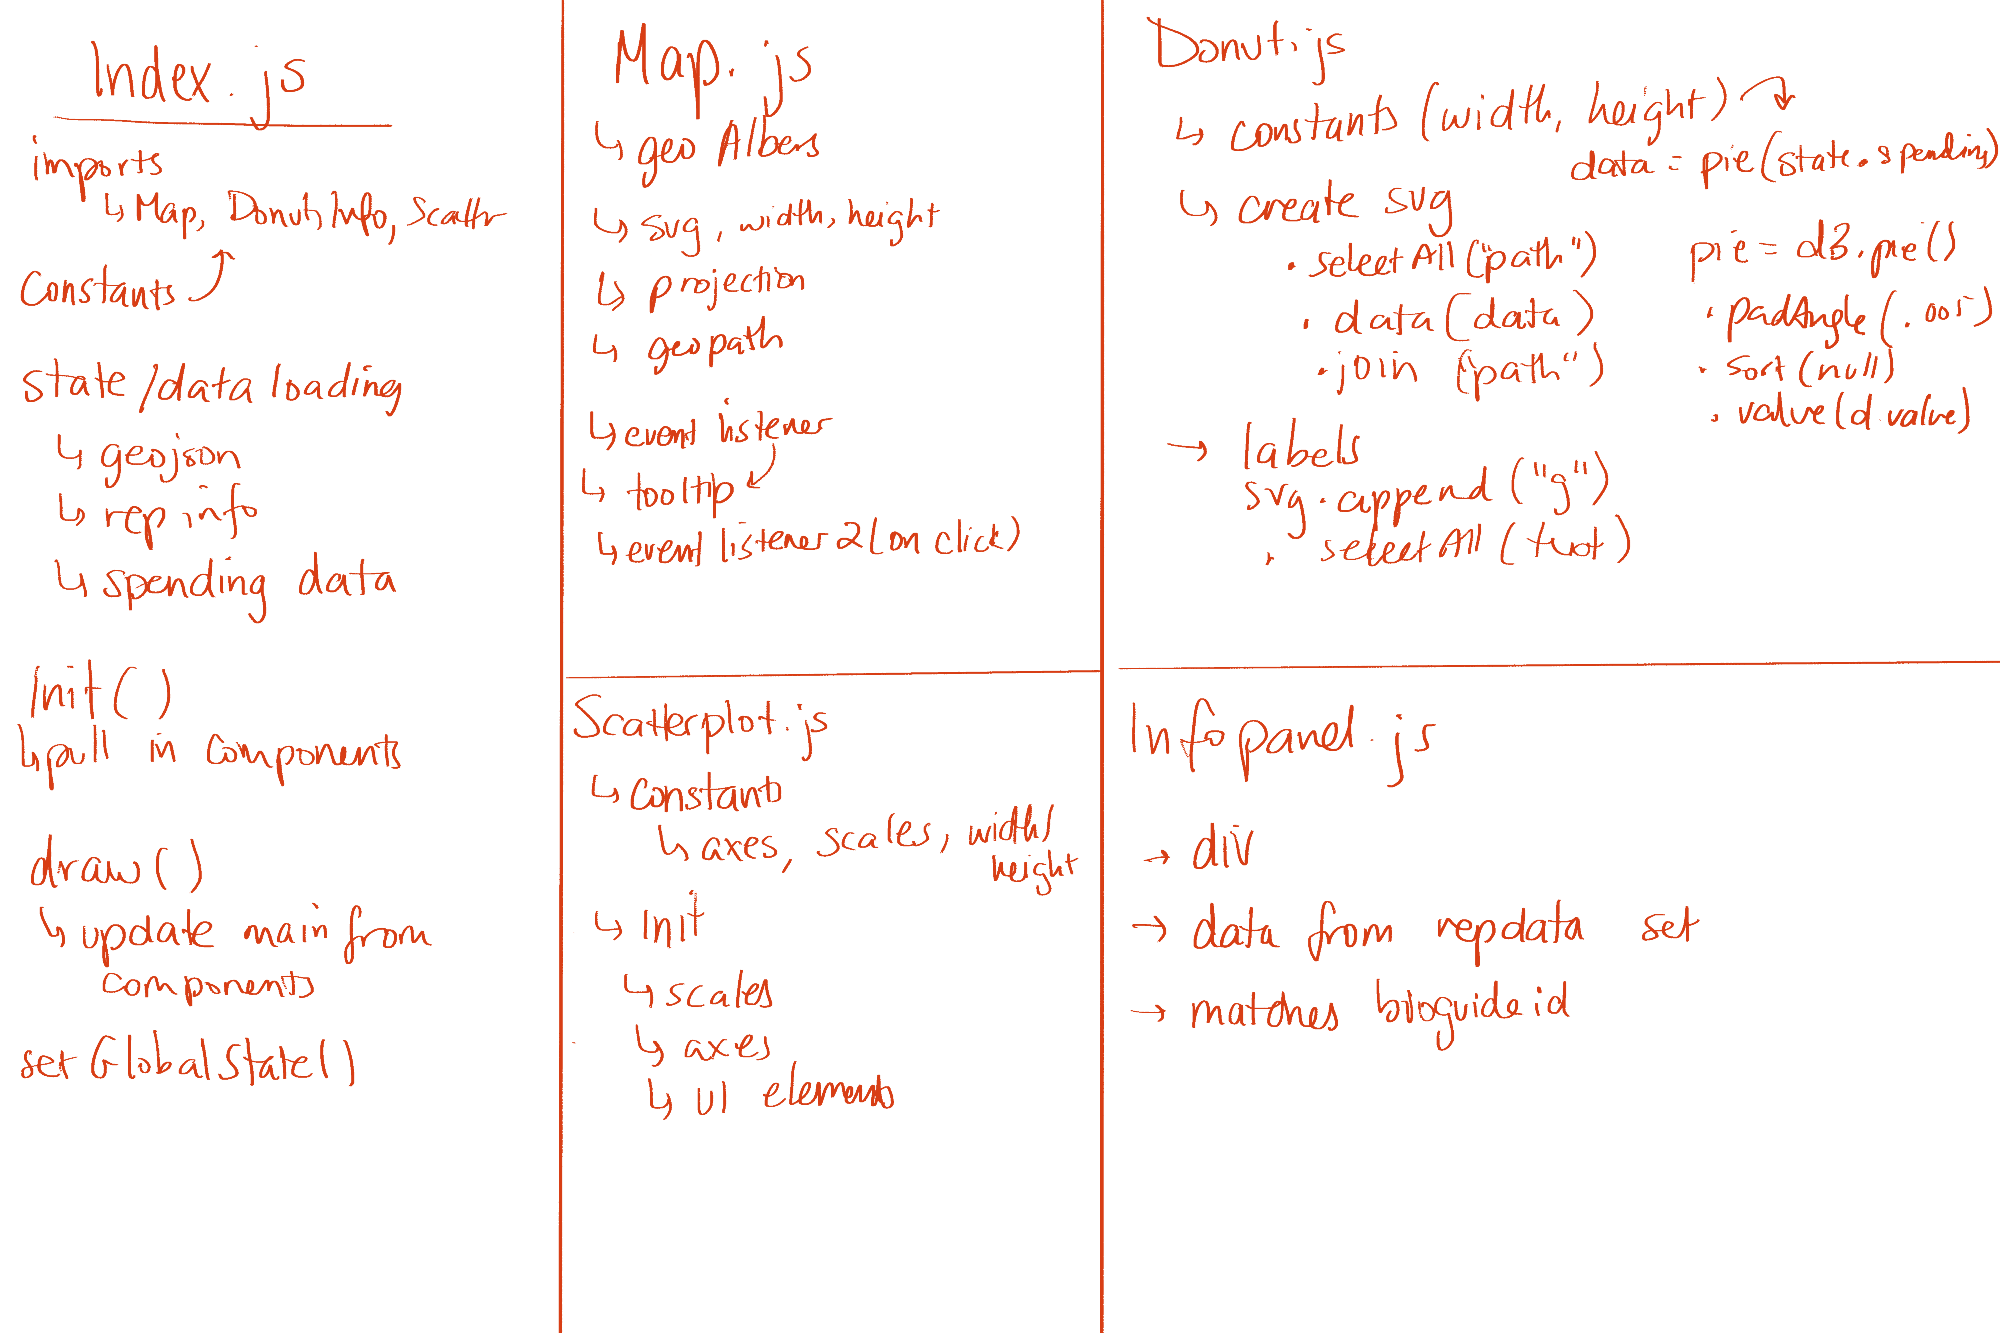 Index.js
imports
↳ Map, Donut, Info, Scatter
Constants
state/data loading
↳ geojson
↳ rep info
↳ spending data
Init()
↳ pull in components
draw()
↳ update main from
components
setGlobalState()
Map.js
↳ geo Albers
↳ svg, width, height
↳ projection
↳ geopath
↳ event listener
↳ tooltip
↳ event listener 2 (on click)
Scatterplot.js
↳ Constants
↳ axes, scales, width/
height
↳ Init
↳ scales
↳ axes
↳ UI elements
Donut.js
↳ constants (width, height)
data = pie(state.spending)
↳ create svg
• selectAll("path")
• data(data)
• join ("path")
pie = d3.pie()
• padAngle(.005)
• sort(null)
• value(d.value)
→ labels
svg.append("g")
• selectAll(text)
Infopanel.js
→ div
→ data from repdata set
→ matches bioguideid